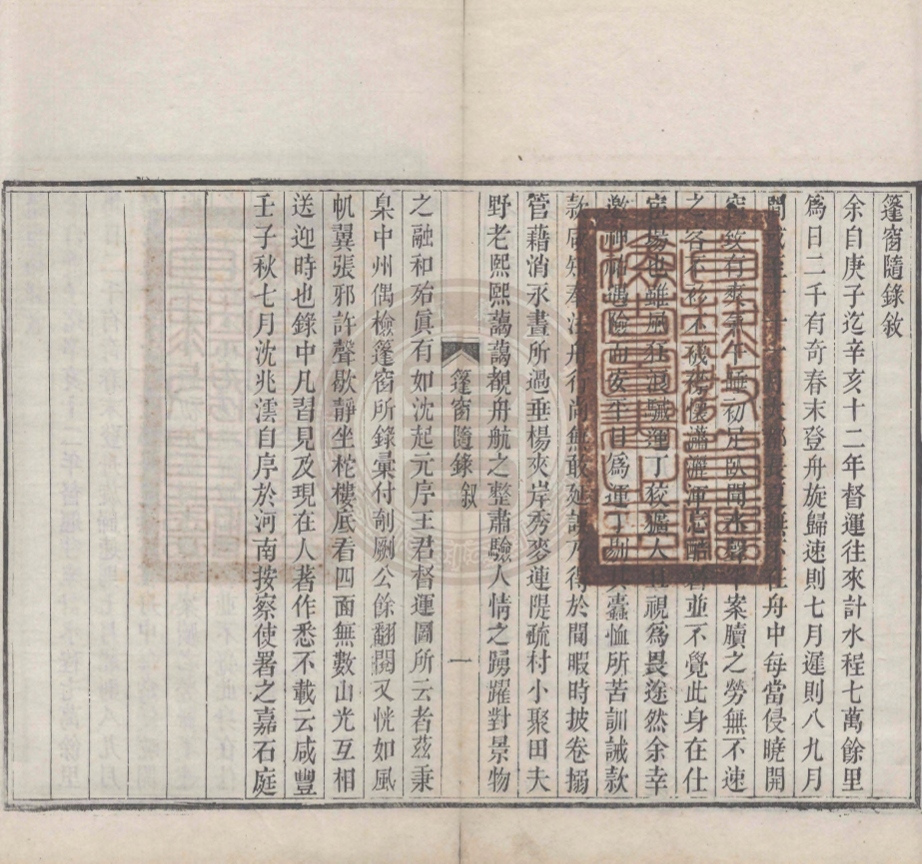 篷窗隨錄敘
余自庚子迄辛亥十二年督運往來計水程七萬餘里
為日二千有奇春末登舟旋歸速則七月遲則八九月
間 舟中每當侵曉開
窗 午睡初足臥聞水聲 案牘之勞無不速
之客不 並不覺此身在仕
宦場也雖風狂浪 運丁狡獷人 視為畏途然余幸
神 遇險而安平日為運丁剔 蠹恤所苦訓誡款
款咸知奉法舟行尚無敢延 乃得於閒暇時披卷搦
管藉消永晝所過垂楊夾岸秀麥連隄疏村小聚田夫
野老熙熙藹藹觀舟航之整肅驗人情之踴躍對景物
篷窗隨錄 敘 一
之融和殆眞有如沈起元序王君督運圖所云者茲秉
臬中州偶檢篷窗所錄彙付剞劂公餘翻閱又恍如風
帆翼張邪許聲歇靜坐柁樓底看四面無數山光互相
送迎時也錄中凡習見及現在人著作悉不載云咸豐
壬子秋七月沈兆澐自序於河南按察使署之嘉石庭